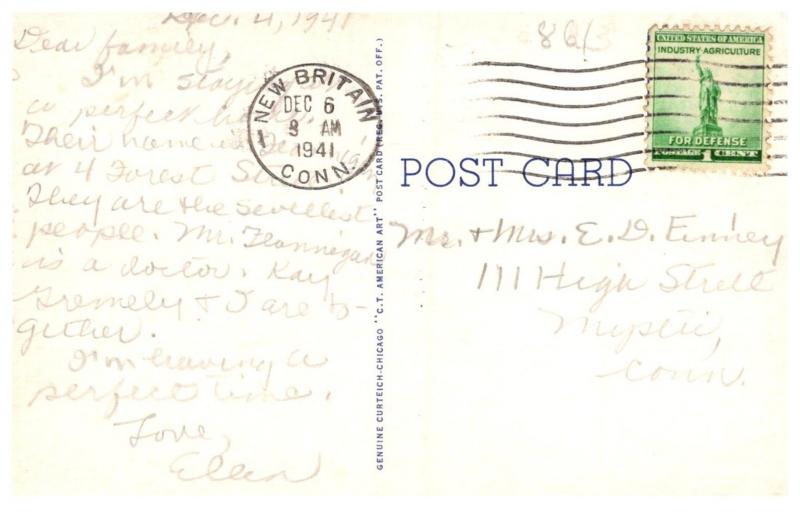 Dec. 4, 1941
Dear family,
I'm staying
a perfect
Their name is Flannigan
at 4 Forest Street.
They are the swellest
people. Mr. Flannigan
is a doctor. Kay
Gremely & I are to-
gether.
I'm having a
perfect time.
Love,
Ellen
NEW BRITAIN
DEC 6
AM
1941
CONN.
GENUINE CURTEICH-CHICAGO "C.T. AMERICAN ART" POST CARD (REG. U.S. PAT. OFF.)
UNITED STATES OF AMERICA
INDUSTRY·AGRICULTURE
FOR DEFENSE
POSTAGE 1 CENT
POST CARD
Mr. & Mrs. E. D. Finney
111 High Street
Mystic,
Conn.